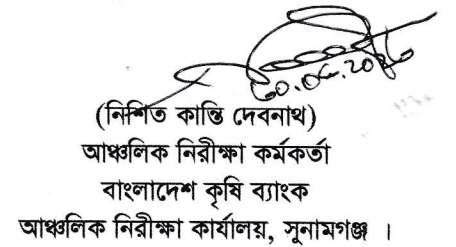 (নিশিত কান্তি দেবনাথ)
আঞ্চলিক নিরীক্ষা কর্মকর্তা
বাংলাদেশ কৃষি ব্যাংক
আঞ্চলিক নিরীক্ষা কার্যালয়, সুনামগঞ্জ ।